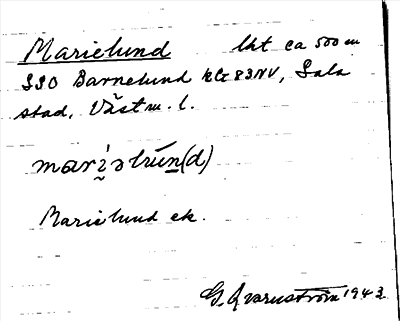 Marielund lht ca 500 m
SSO Barnelund kbl 83NV, Sala
stad, Västm. l.
marìəlún(d)
Marielund ek.
G. Qvarnström 1943